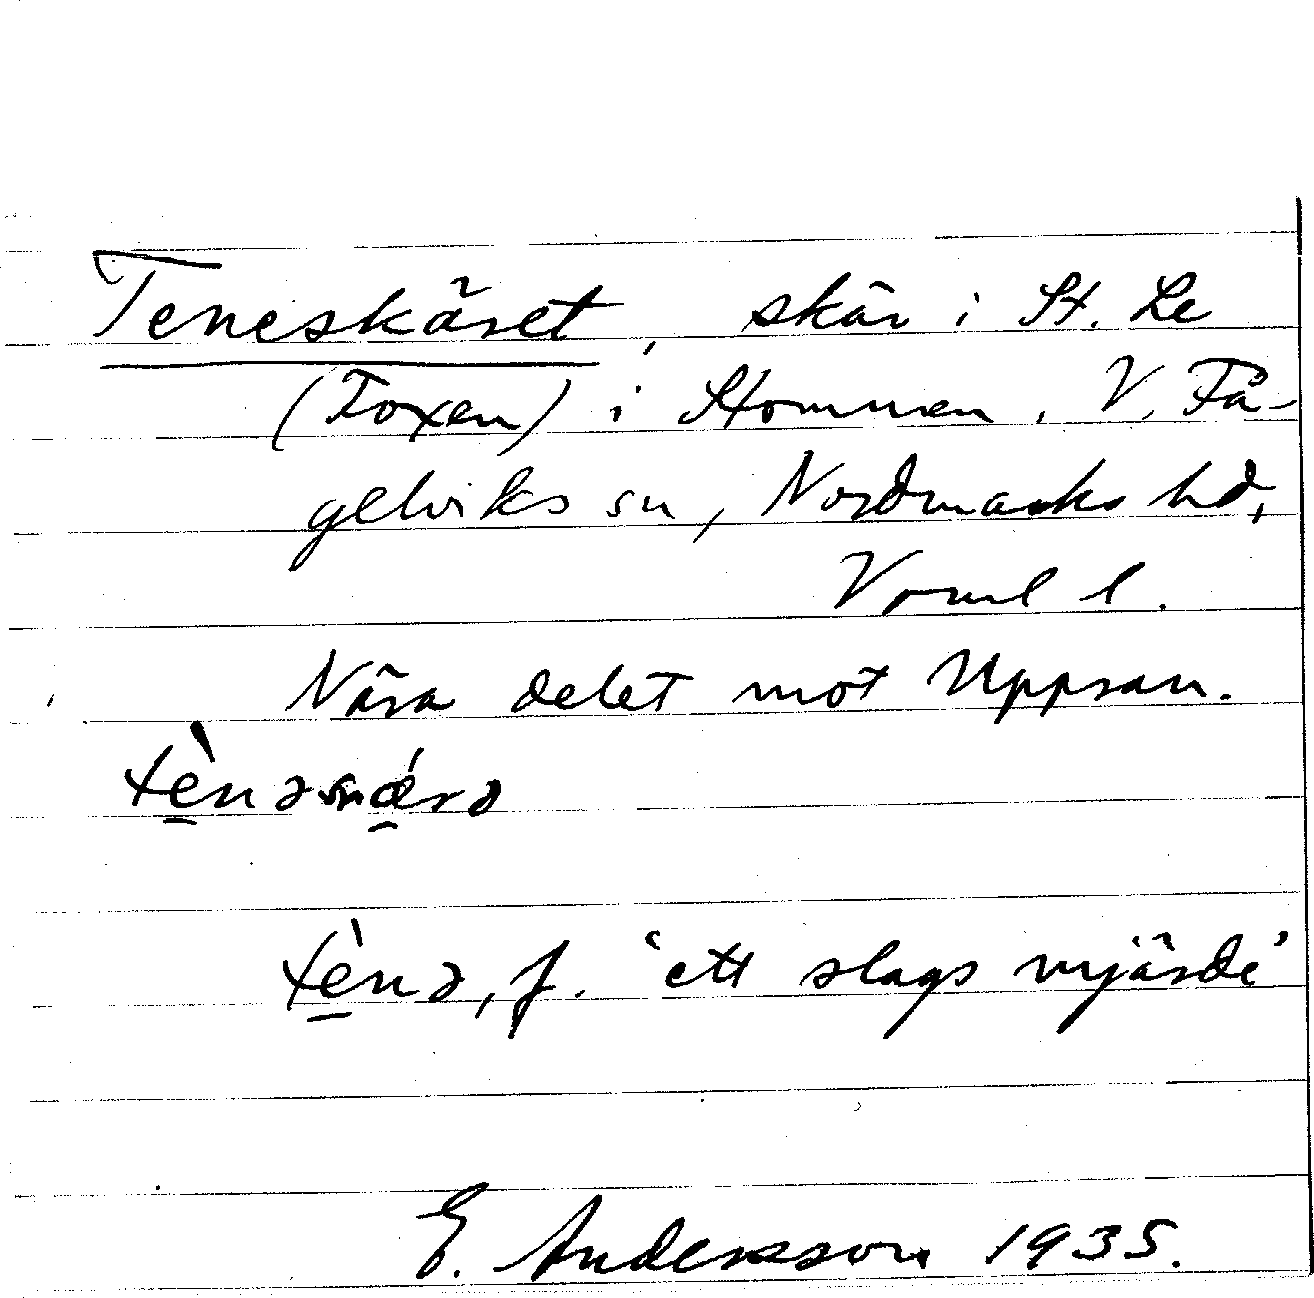 Teneskäret, skär i St. Le
(Foxen) i Stommen, V. Få-
gelviks sn, Nordmarks hd,
Vrml l.
Nära delet mot Uppsan.
tènə
tènə, f. 'ett slags mjärde'
E. Andersson 1935.